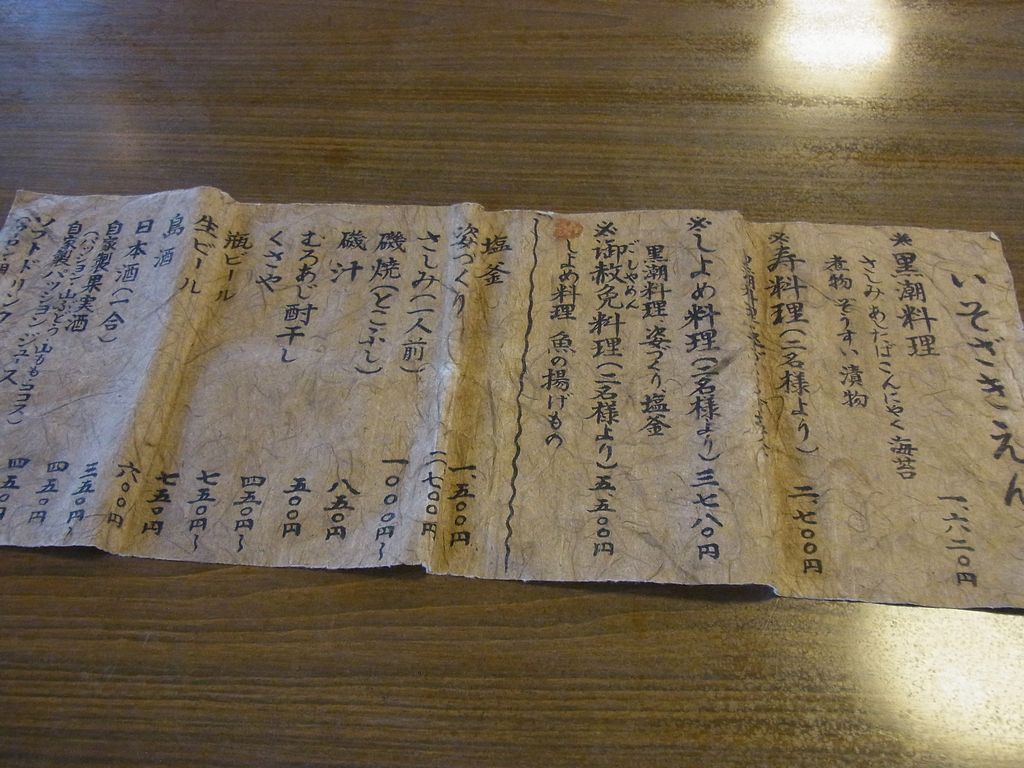 いそざきえん
※黒潮料理 一、六二〇円
さしみ めだば こんにゃく 海苔
煮物 ぞうすい 漬物
※寿料理(二名様より) 二、七〇〇円
※しよめ料理(二名様より) 三、七八〇円
黒潮料理 姿づくり 塩釜
ごしゃめん
※御赦免料理(二名様より) 五、五〇〇円
しよめ料理 魚の揚げもの
塩釜 一、五〇〇円
姿づくり
さしみ(一人前)
磯焼(とこぶし) 一、〇〇〇円〜
磯汁 八五〇円
むろあじ酎干し 五〇〇円
くさや
瓶ビール 七五〇円〜
生ビール
島酒 七五〇円
日本酒(一合) 六〇〇円
自家製果実酒 三五〇円
(パッション・山ぶどう 山もも ココス)
自家製パッションジュース 四五〇円
ソフトドリンク 四五〇円